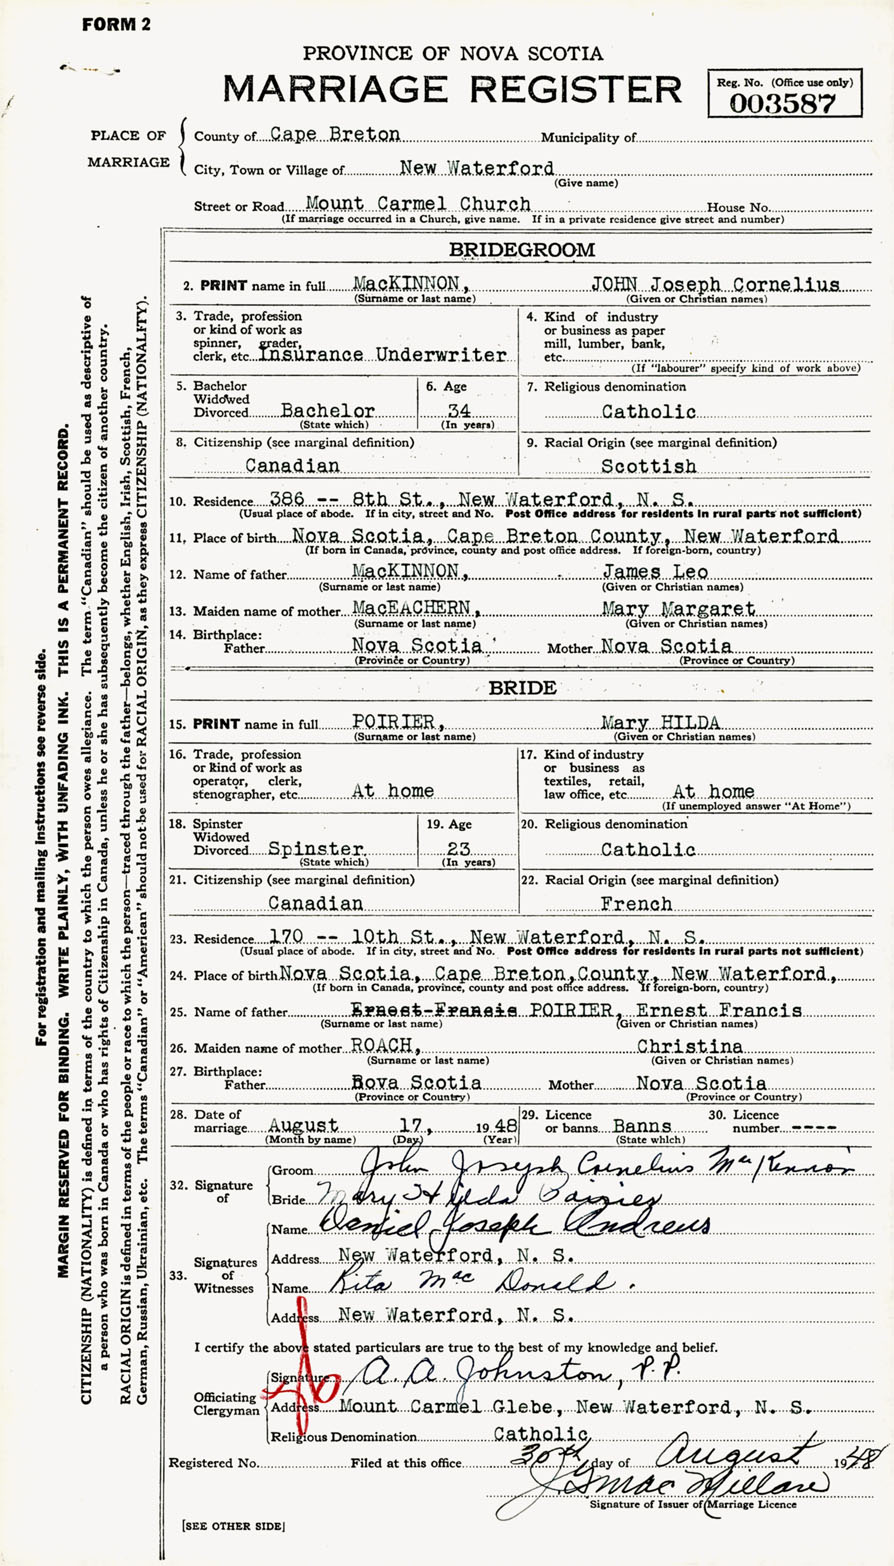 FORM 2
PROVINCE OF NOVA SCOTIA
MARRIAGE REGISTER
Reg. No. (Office use only)
003587
PLACE OF MARRIAGE
County of Cape Breton Municipality of
City, Town or Village of New Waterford
(Give name)
Street or Road Mount Carmel Church House No.
(If marriage occurred in a Church, give name. If in a private residence give street and number)
BRIDEGROOM
2. PRINT name in full MacKINNON, JOHN Joseph Cornelius
(Surname or last name) (Given or Christian names)
3. Trade, profession
or kind of work as
spinner, grader,
clerk, etc. Insurance Underwriter
4. Kind of industry
or business as paper
mill, lumber, bank,
etc.
(If "labourer" specify kind of work above)
5. Bachelor
Widowed
Divorced Bachelor
(State which)
6. Age
34
(In years)
7. Religious denomination
Catholic
8. Citizenship (see marginal definition)
Canadian
9. Racial Origin (see marginal definition)
Scottish
10. Residence 386 -- 8th St., New Waterford, N. S.
(Usual place of abode. If in city, street and No. Post Office address for residents in rural parts not sufficient)
11. Place of birth Nova Scotia, Cape Breton County, New Waterford
(If born in Canada, province, county and post office address. If foreign-born, country)
12. Name of father MacKINNON, James Leo
(Surname or last name) (Given or Christian names)
13. Maiden name of mother MacEACHERN, Mary Margaret
(Surname or last name) (Given or Christian names)
14. Birthplace:
Father Nova Scotia Mother Nova Scotia
(Province or Country) (Province or Country)
BRIDE
15. PRINT name in full POIRIER, Mary HILDA
(Surname or last name) (Given or Christian names)
16. Trade, profession
or kind of work as
operator, clerk,
stenographer, etc. At home
17. Kind of industry
or business as
textiles, retail,
law office, etc. At home
(If unemployed answer "At Home")
18. Spinster
Widowed
Divorced Spinster
(State which)
19. Age
23
(In years)
20. Religious denomination
Catholic
21. Citizenship (see marginal definition)
Canadian
22. Racial Origin (see marginal definition)
French
23. Residence 170 -- 10th St., New Waterford, N. S.
(Usual place of abode. If in city, street and No. Post Office address for residents in rural parts not sufficient)
24. Place of birth Nova Scotia, Cape Breton, County, New Waterford,
(If born in Canada, province, county and post office address. If foreign-born, country)
25. Name of father Ernest Francis POIRIER, Ernest Francis
(Surname or last name) (Given or Christian names)
26. Maiden name of mother ROACH, Christina
(Surname or last name) (Given or Christian names)
27. Birthplace:
Father Nova Scotia Mother Nova Scotia
(Province or Country) (Province or Country)
28. Date of
marriage August 17, 1948
(Month by name) (Day) (Year)
29. Licence
or banns Banns
(State which)
30. Licence
number ----
32. Signature of
Groom John Joseph Cornelius MacKinnon
Bride Mary Hilda Poirier
33. Signatures of Witnesses
Name Daniel Joseph Andrews
Address New Waterford, N. S.
Name Rita Mac Donald.
Address New Waterford, N. S.
I certify the above stated particulars are true to the best of my knowledge and belief.
Officiating Clergyman
Signature A. A. Johnston, P.P.
Address Mount Carmel Glebe, New Waterford, N. S.
Religious Denomination Catholic
Registered No. Filed at this office 30th day of August 1948
J G MacMillan
Signature of Issuer of Marriage Licence
[SEE OTHER SIDE]
For registration and mailing instructions see reverse side.
MARGIN RESERVED FOR BINDING. WRITE PLAINLY, WITH UNFADING INK. THIS IS A PERMANENT RECORD.
CITIZENSHIP (NATIONALITY) is defined in terms of the country to which the person owes allegiance. The term "Canadian" should be used as descriptive of
a person who was born in Canada or who has rights of Citizenship in Canada, unless he or she has subsequently become the citizen of another country.
RACIAL ORIGIN is defined in terms of the people or race to which the person—traced through the father—belongs, whether English, Irish, Scottish, French,
German, Russian, Ukrainian, etc. The terms "Canadian" or "American" should not be used for RACIAL ORIGIN, as they express CITIZENSHIP (NATIONALITY).